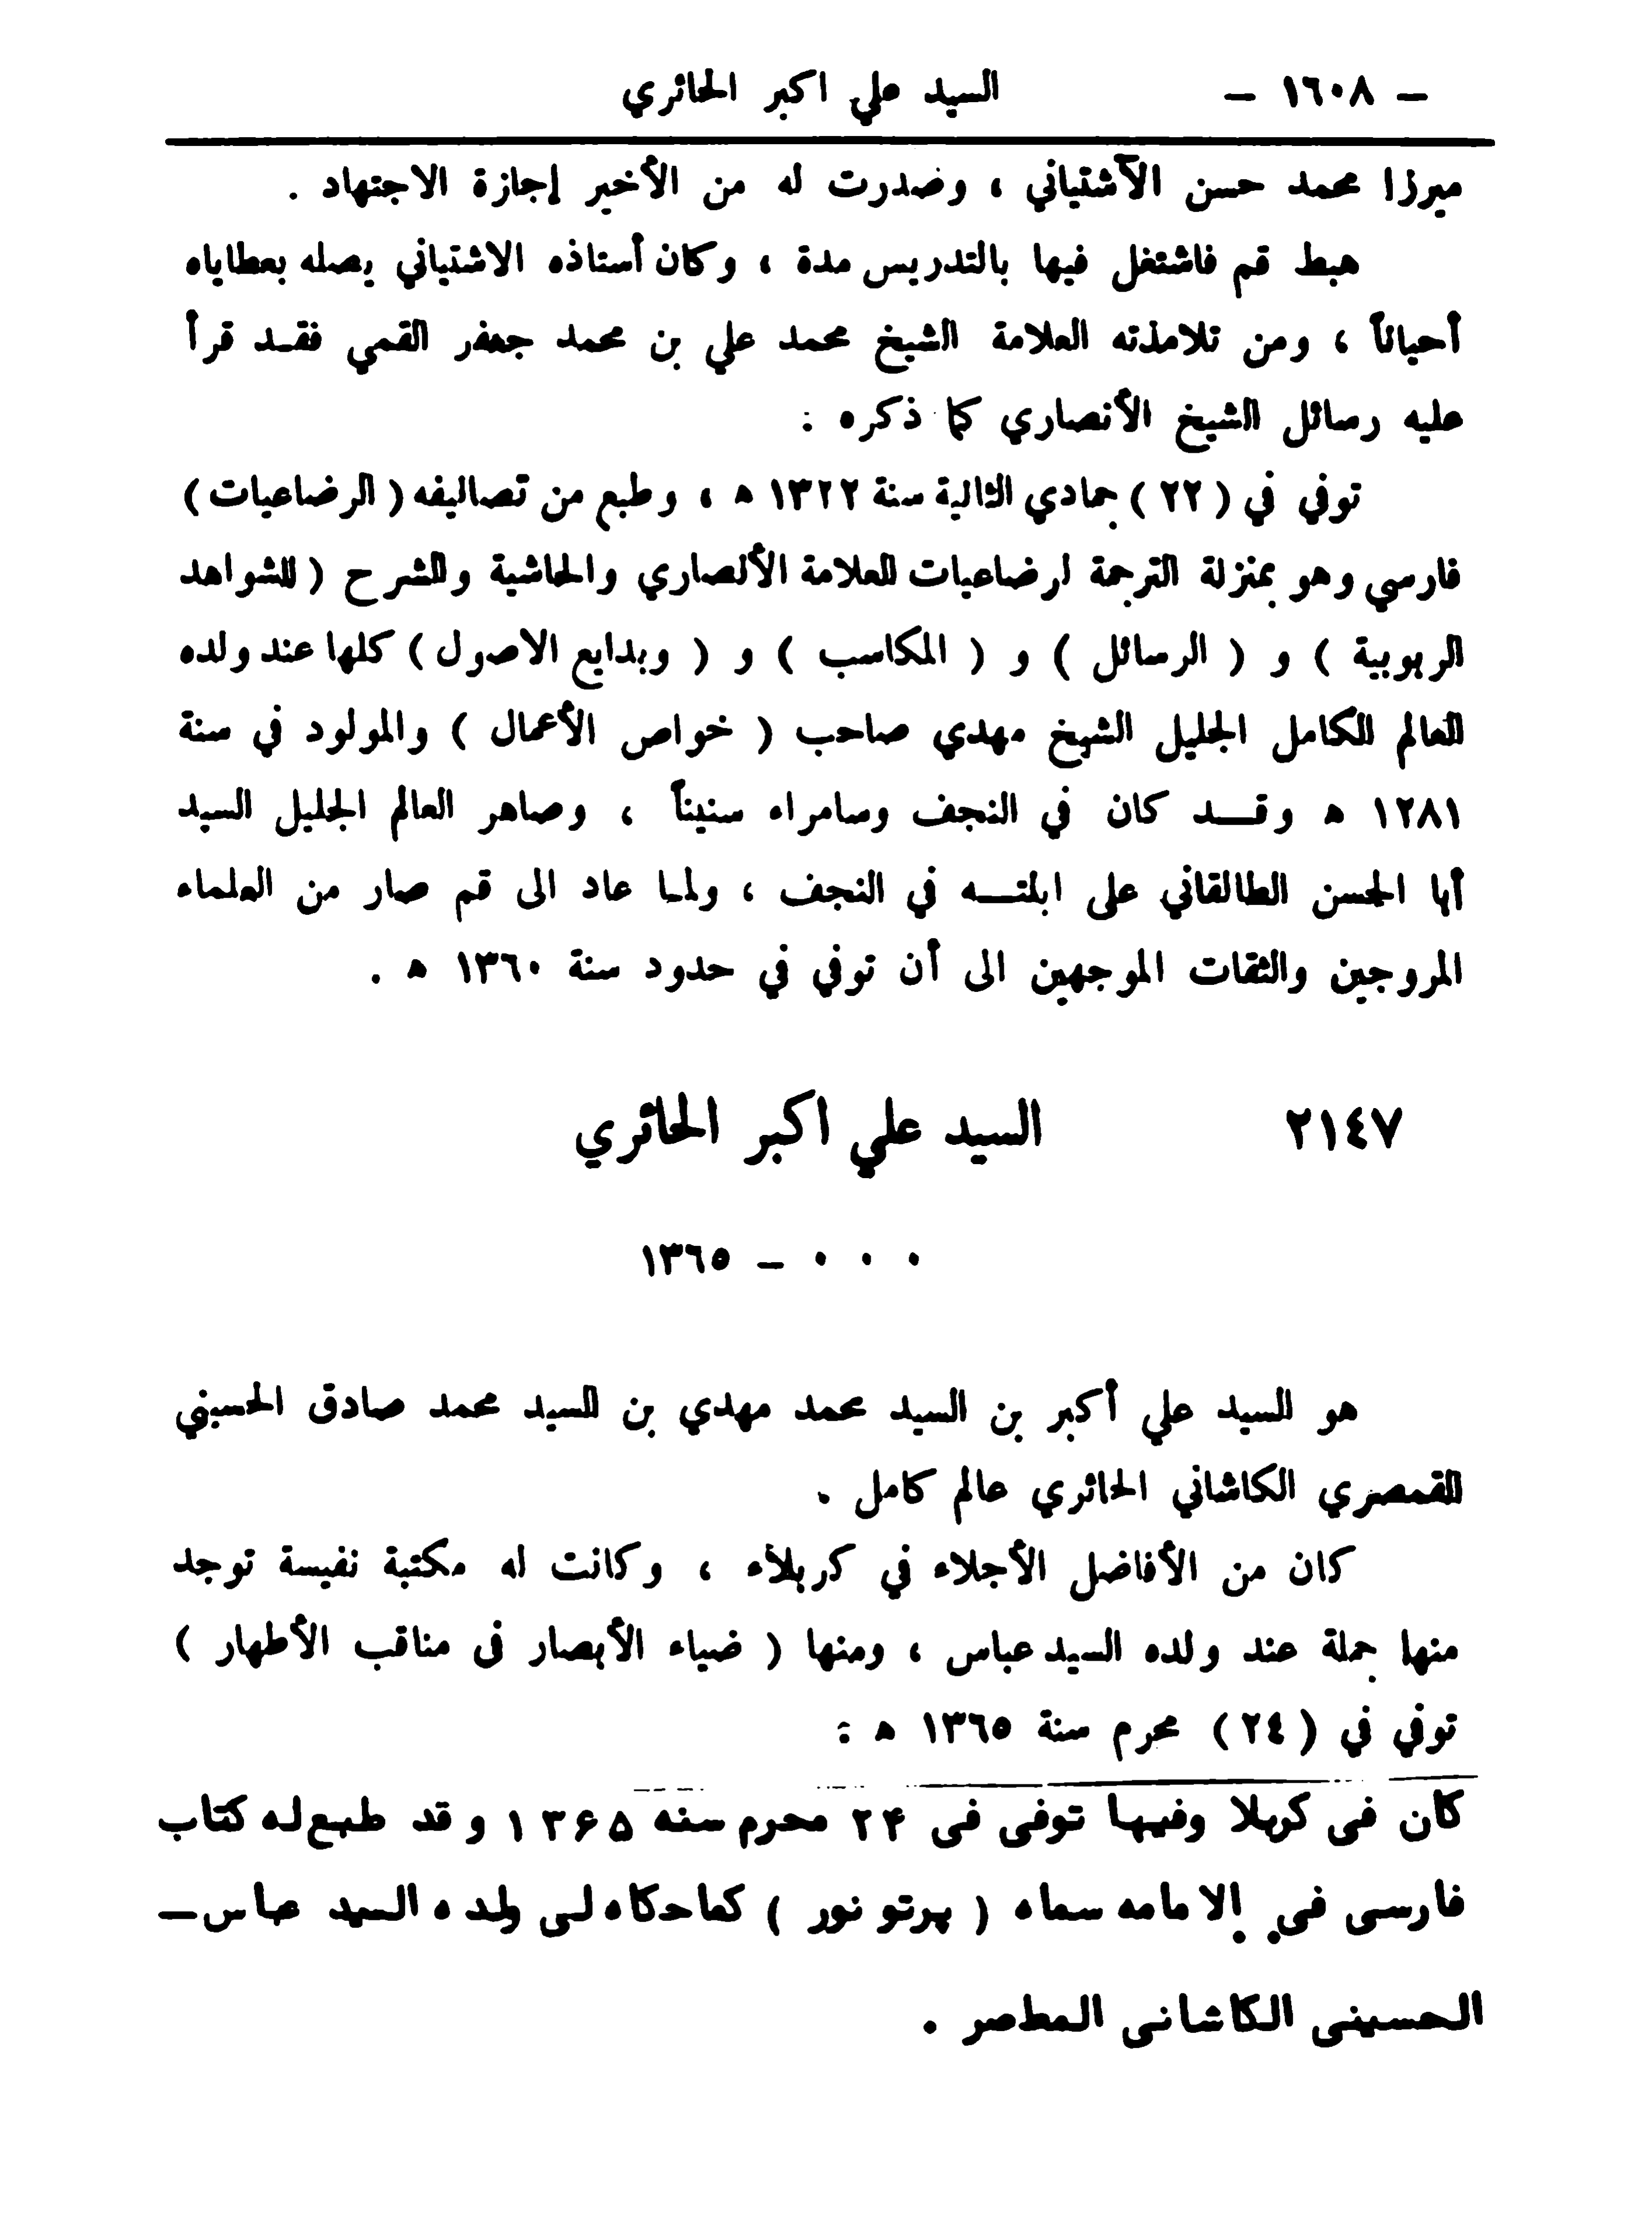 – ١٦٠٨ – السيد علي اكبر الحائري
ميرزا محمد حسن الآشتياني ، وصدرت له من الأخير إجازة الاجتهاد .
هبط قم فاشتغل فيها بالتدريس مدة ، وكان أستاذه الاشتياني يصله بعطاياه
أحياناً ، ومن تلامذته العلامة الشيخ محمد علي بن محمد جعفر القمي فقد قرأ
عليه رسائل الشيخ الأنصاري كما ذكره :
توفي في ( ٢٢ ) جمادي الثانية سنة ١٣٢٢ ه ، وطبع من تصانيفه ( الرضاعيات )
فارسي وهو بمنزلة الترجمة لرضاعيات العلامة الأنصاري والحاشية والشرح ( للشواهد
الربوبية ) و ( الرسائل ) و ( المكاسب ) و ( وبدايع الاصول ) كلها عند ولده
العالم الكامل الجليل الشيخ مهدي صاحب ( خواص الأعمال ) والمولود في سنة
١٢٨١ ه وقد كان في النجف وسامراء سنيناً ، وصاهر العالم الجليل السيد
أبا الحسن الطالقاني على ابنته في النجف ، ولما عاد الى قم صار من العلماء
المروجين والثقات الموجهين الى أن توفي في حدود سنة ١٣٦٠ ه .
٢١٤٧ السيد علي اكبر الحائري
٠ ٠ ٠ – ١٣٦٥
هو السيد علي أكبر بن السيد محمد مهدي بن السيد محمد صادق الحسيني
القمصري الكاشاني الحائري عالم كامل .
كان من الأفاضل الأجلاء في كربلاء ، وكانت له مكتبة نفيسة توجد
منها جملة عند ولده السيد عباس ، ومنها ( ضياء الأبصار فى مناقب الأطهار )
توفي في ( ٢٤ ) محرم سنة ١٣٦٥ ه :
كان فى كربلا وفيها توفى فى ۲۴ محرم سنه ۱۳۶۵ و قد طبع له كتاب
فارسى فى الامامه سماه ( پرتو نور ) كما حكاه لى ولده السيد عباس –
الحسينى الكاشانى المعاصر .